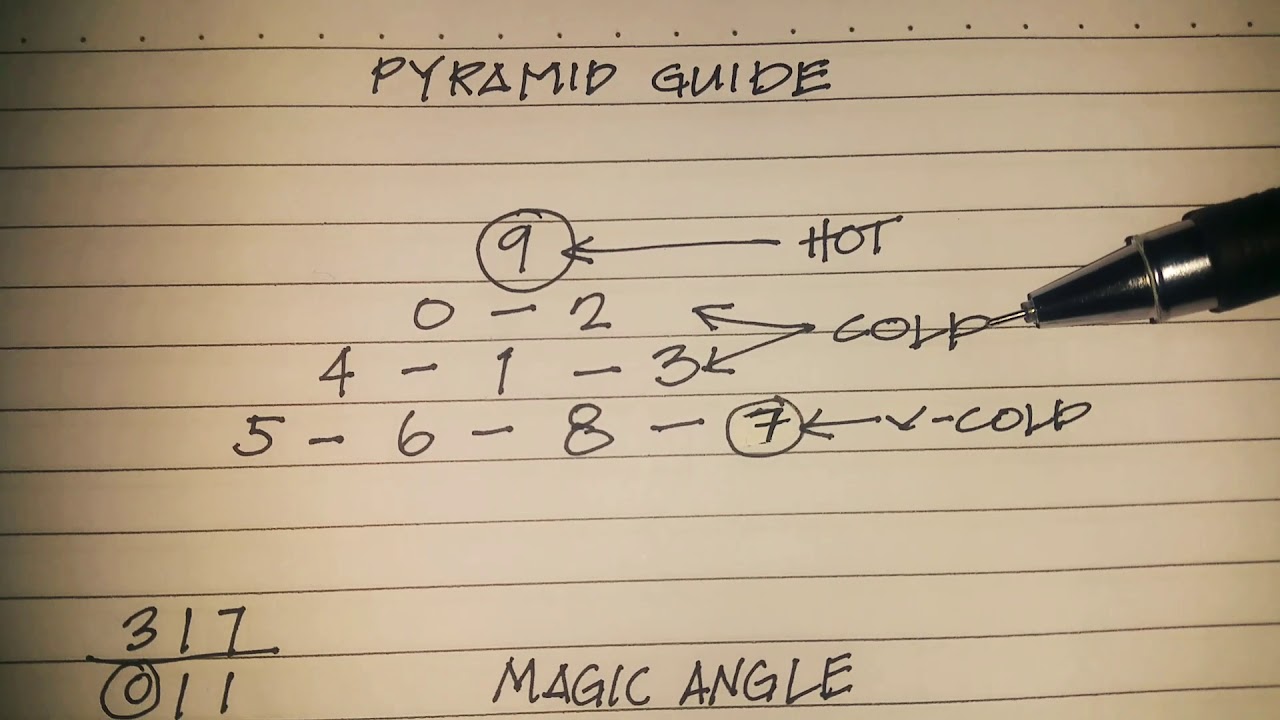 PYRAMID GUIDE
9 HOT
0 - 2
COLD
4 - 1 - 3
5 - 6 - 8 - 7 V-COLD
317
011
MAGIC ANGLE